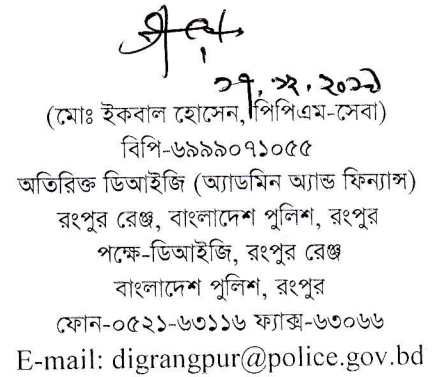 (মোঃ ইকবাল হোসেন, পিপিএম-সেবা)
বিপি-৬৯৯৯০৭১০৫৫
অতিরিক্ত ডিআইজি (অ্যাডমিন অ্যান্ড ফিন্যান্স)
রংপুর রেঞ্জ, বাংলাদেশ পুলিশ, রংপুর
পক্ষে-ডিআইজি, রংপুর রেঞ্জ
বাংলাদেশ পুলিশ, রংপুর
ফোন-০৫২১-৬৩১১৬ ফ্যাক্স-৬৩০৬৬
E-mail: digrangpur@police.gov.bd